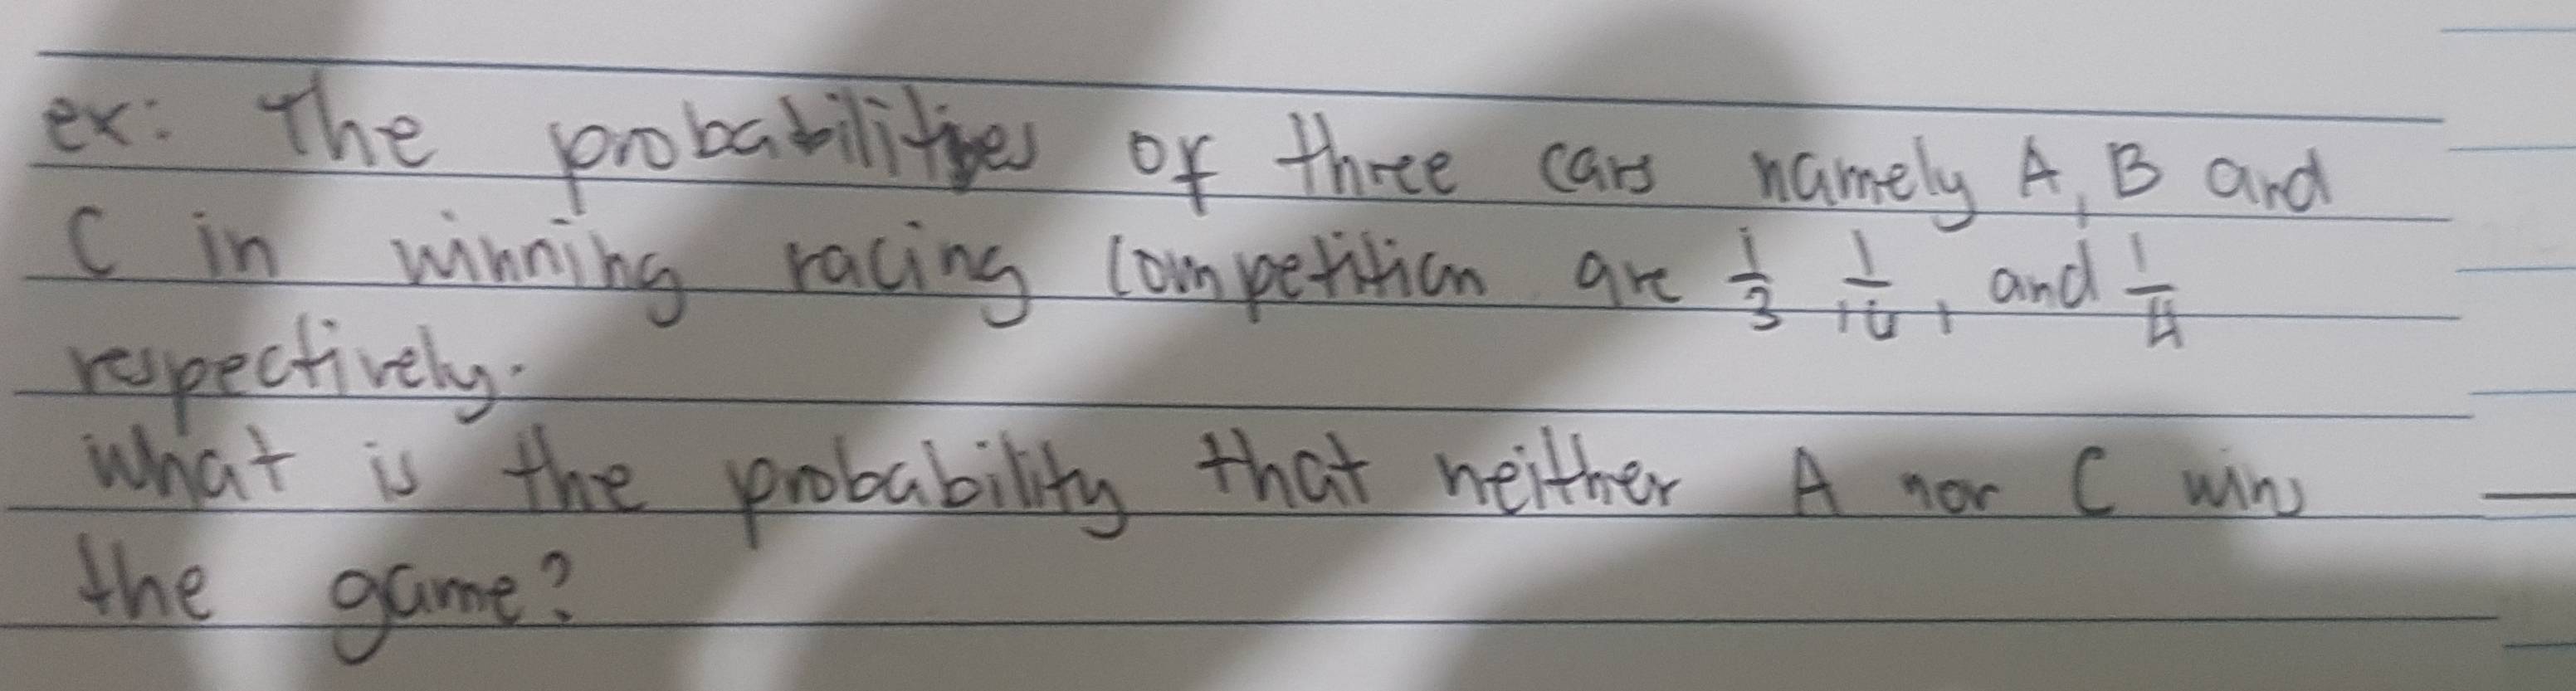 ex: The probabilities of three cars namely A, B and
C in winning racing competition are 1/3, 1/6, and 1/4
respectively.
what is the probability that neither A nor C wins
the game?